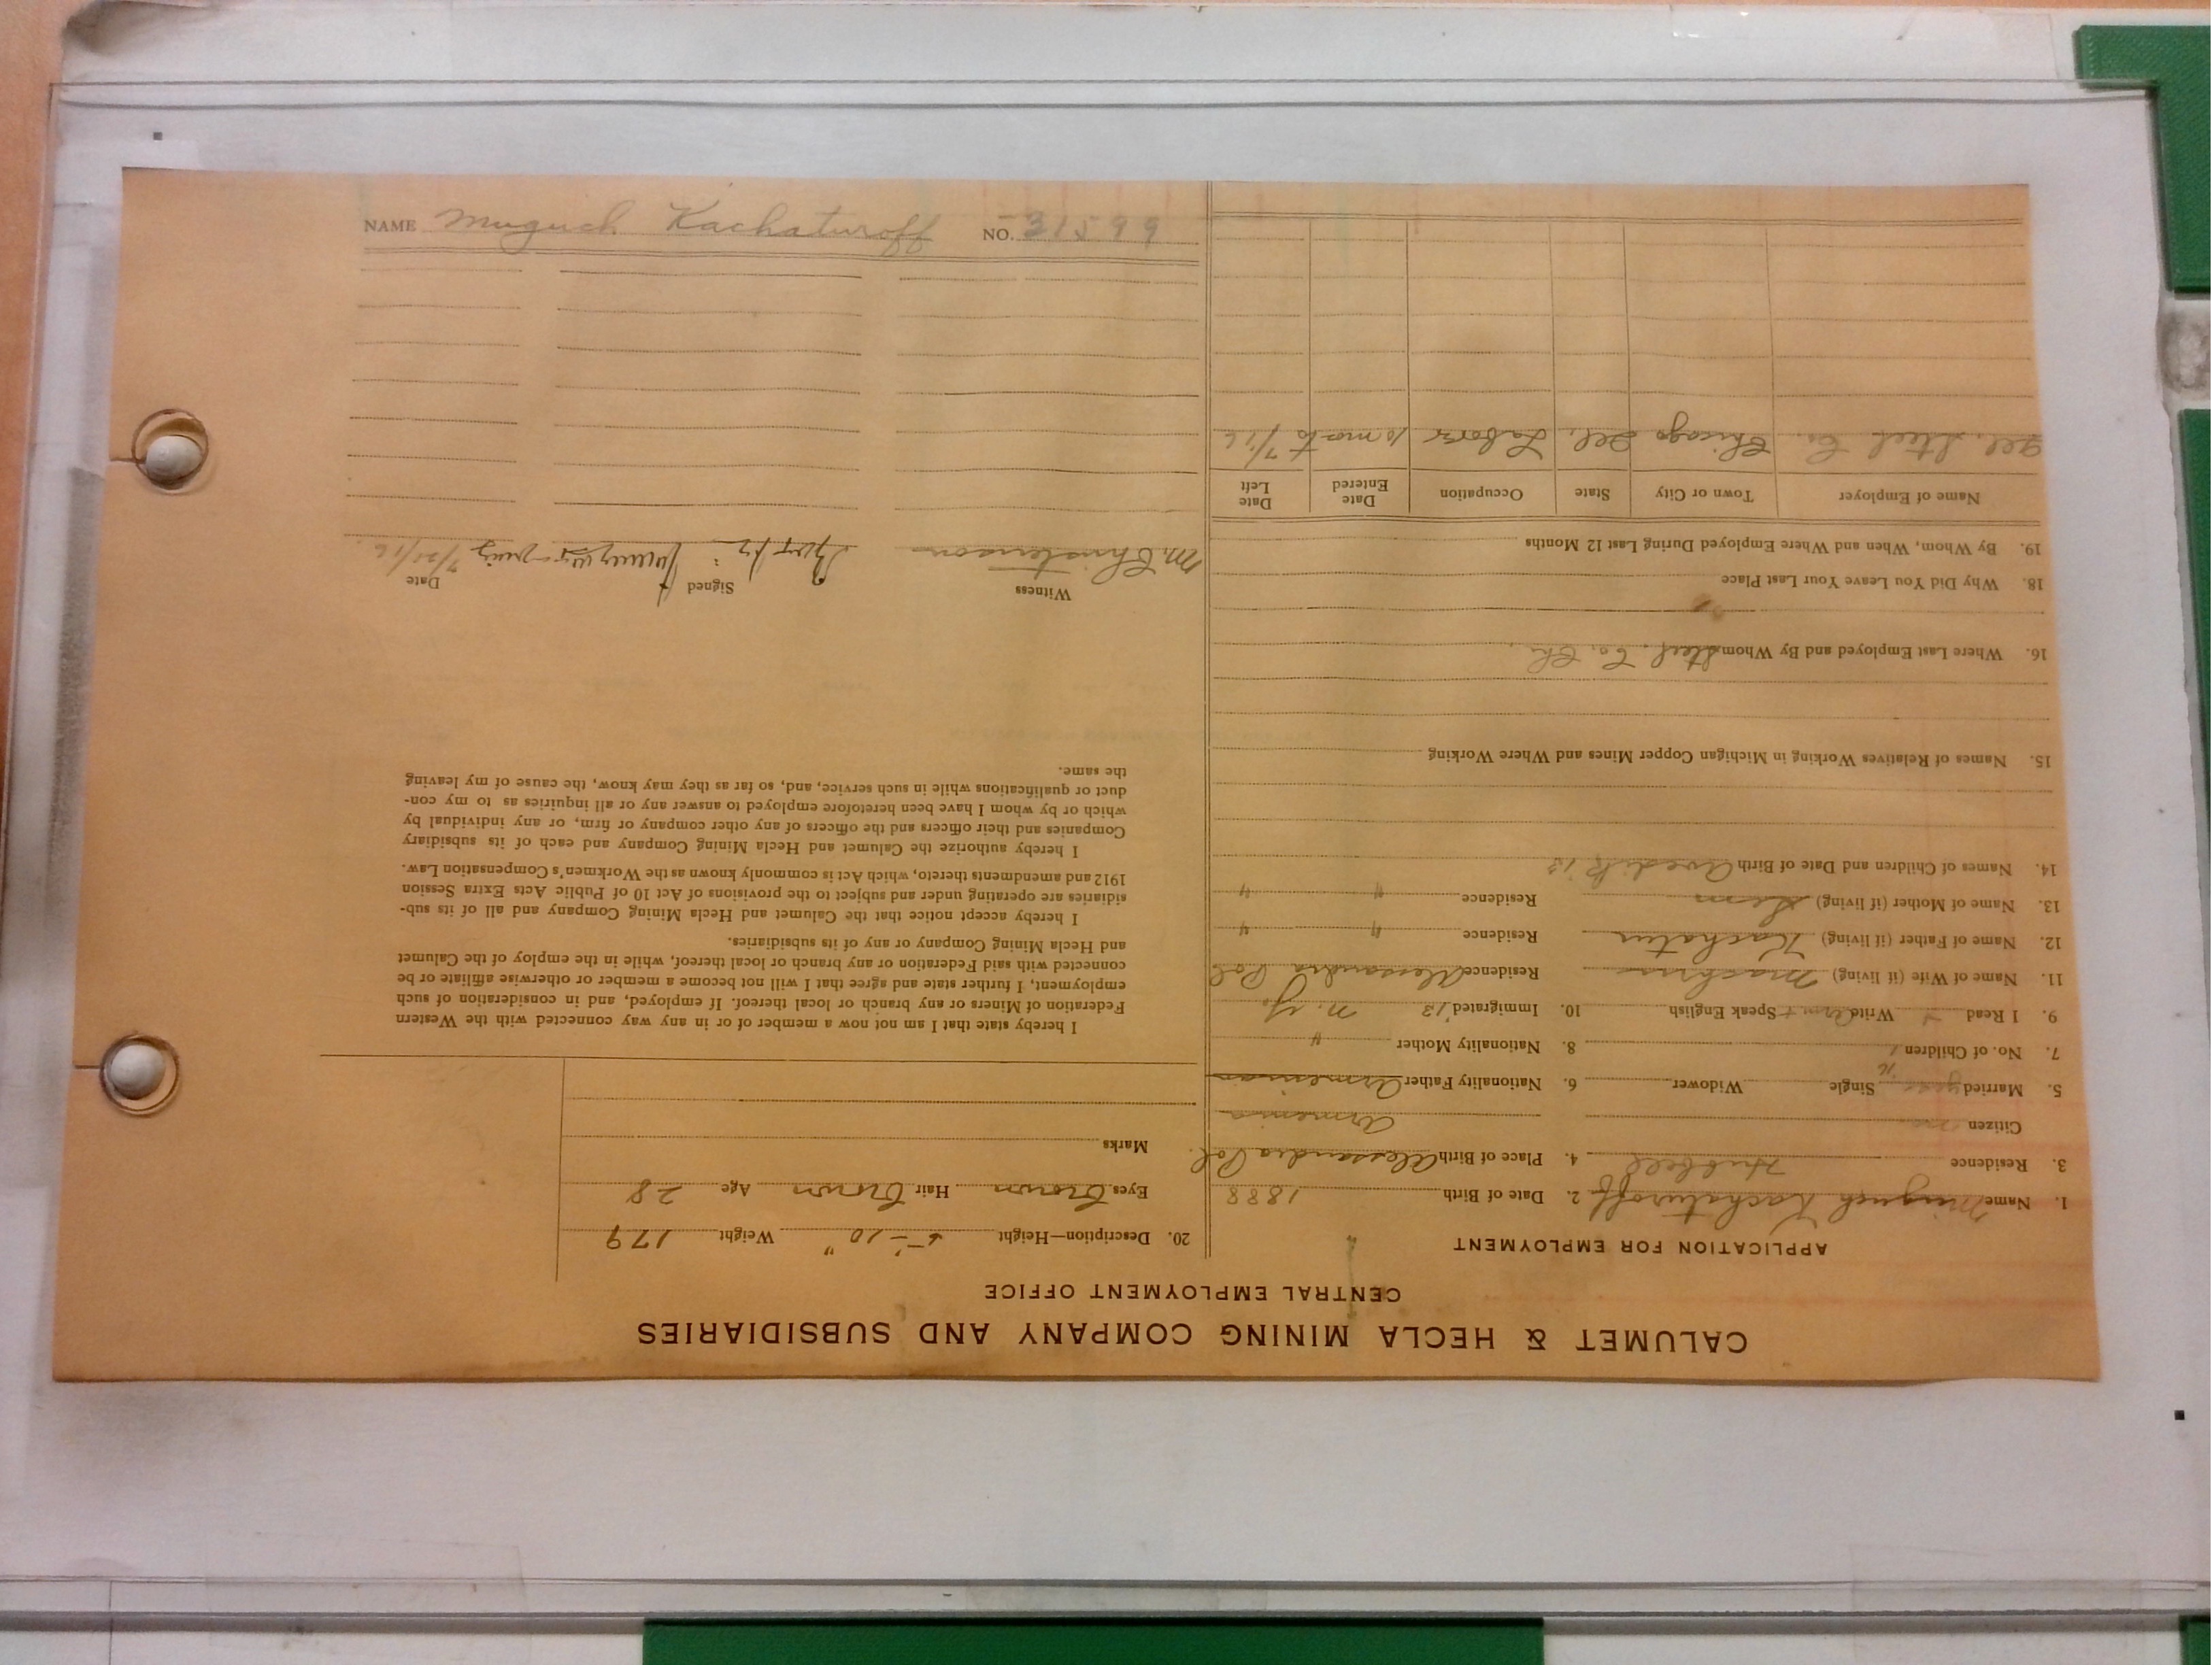 CALUMET & HECLA MINING COMPANY AND SUBSIDIARIES
CENTRAL EMPLOYMENT OFFICE
APPLICATION FOR EMPLOYMENT
1. Name Muguch Kachaturoff 2. Date of Birth 1888
3. Residence Hubbell 4. Place of Birth Alessandra Pol.
Citizen no Armenia
5. Married yes Single Widower 6. Nationality Father Armenian
7. No. of Children 1 8. Nationality Mother "
9. I Read Write Speak English 10. Immigrated '13 N.Y.
11. Name of Wife (if living) Residence Alessandra Pol
12. Name of Father (if living) Kachatur Residence " "
13. Name of Mother (if living) Residence " "
14. Names of Children and Date of Birth Avedik '13
15. Names of Relatives Working in Michigan Copper Mines and Where Working
16. Where Last Employed and By Whom Steel Co. Ch.
18. Why Did You Leave Your Last Place
19. By Whom, When and Where Employed During Last 12 Months
Name of Employer Town or City State Occupation Date Entered Date Left
Ill. Steel Co. Chicago Ill. Labor 10 mo to 7/16
20. Description—Height 5'-10" Weight 179
Eyes Brown Hair Brown Age 28
Marks
I hereby state that I am not now a member of or in any way connected with the Western
Federation of Miners or any branch or local thereof. If employed, and in consideration of such
employment, I further state and agree that I will not become a member or otherwise affiliate or be
connected with said Federation or any branch or local thereof, while in the employ of the Calumet
and Hecla Mining Company or any of its subsidiaries.
I hereby accept notice that the Calumet and Hecla Mining Company and all of its sub-
sidiaries are operating under and subject to the provisions of Act 10 of Public Acts Extra Session
1912 and amendments thereto, which Act is commonly known as the Workmen's Compensation Law.
I hereby authorize the Calumet and Hecla Mining Company and each of its subsidiary
Companies and their officers and the officers of any other company or firm, or any individual by
which or by whom I have been heretofore employed to answer any or all inquiries as to my con-
duct or qualifications while in such service, and, so far as they may know, the cause of my leaving
the same.
Witness Signed Date
M. Christenson 7/21/16
NAME Muguch Kachaturoff NO. 31599